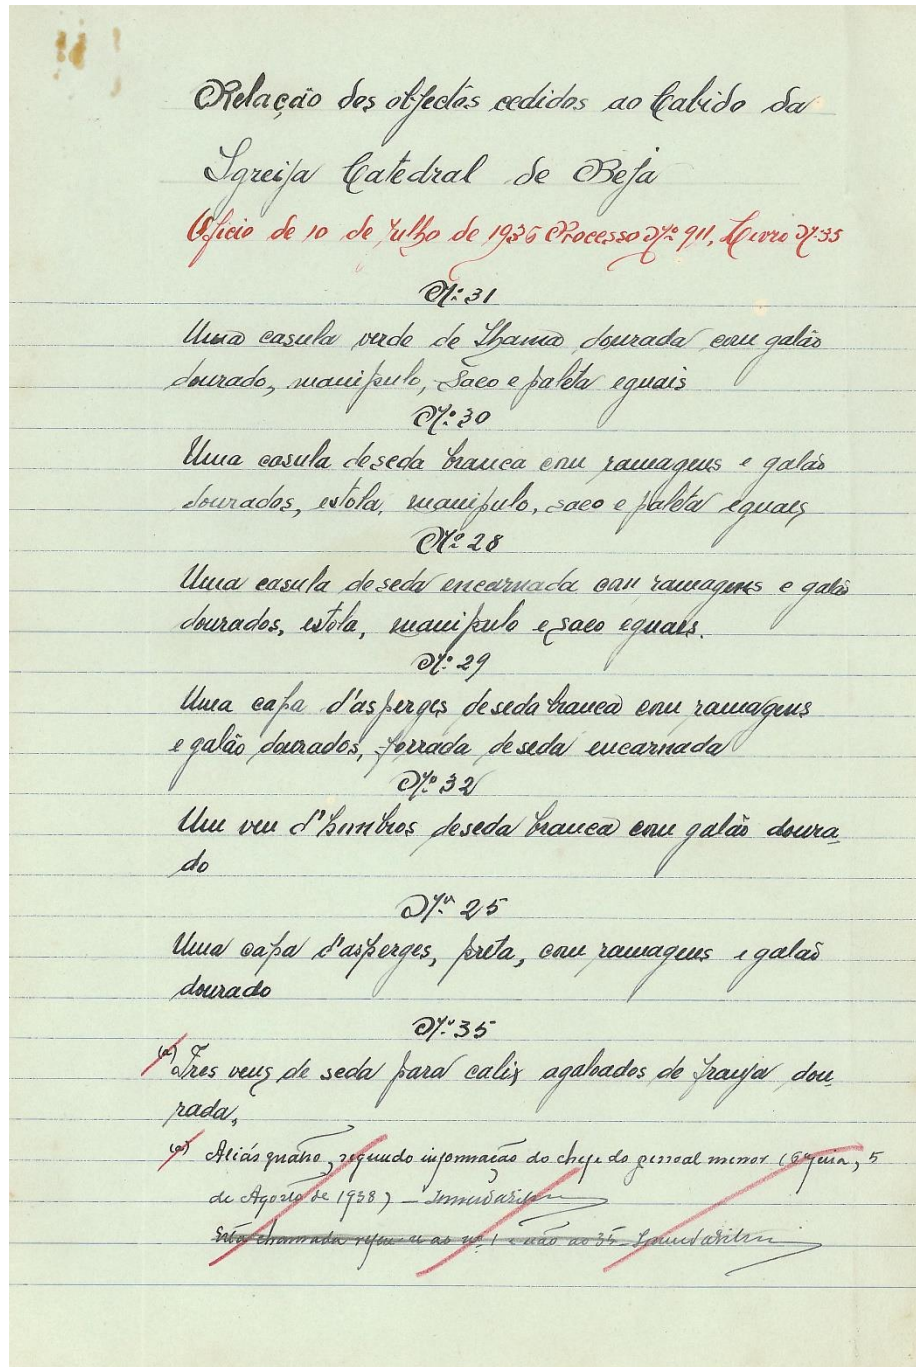 Relação dos objectos cedidos ao Cabido da
Igreija Catedral de Beja
Oficio de 10 de Julho de 1936 Processo Nº 911, Livro Nº 35
Nº 31
Uma casula verde de Lhama dourada com galão
dourado, manipulo, saco e paleta eguais
Nº 30
Uma casula de seda branca com ramagens e galão
dourados, estola, manipulo, saco e paleta eguais
Nº 28
Uma casula de seda encarnada com ramagens e galão
dourados, estola, manipulo e saco eguais.
Nº 29
Uma capa d'asperges de seda branca com ramagens
e galão dourados, forrada de seda encarnada
Nº 32
Um veu d'hombros de seda branca com galão doura-
do
Nº 25
Uma capa d'asperges, preta, com ramagens e galão
dourado
Nº 35
(a) Tres veus de seda para calix agaloados de franja dou-
rada,
(a) Aliás quatro, segundo informação do chefe do pessoal menor (, 5
de Agosto de 1938) –
Esta chamada refere-se ao nº 1 e não ao 35 –